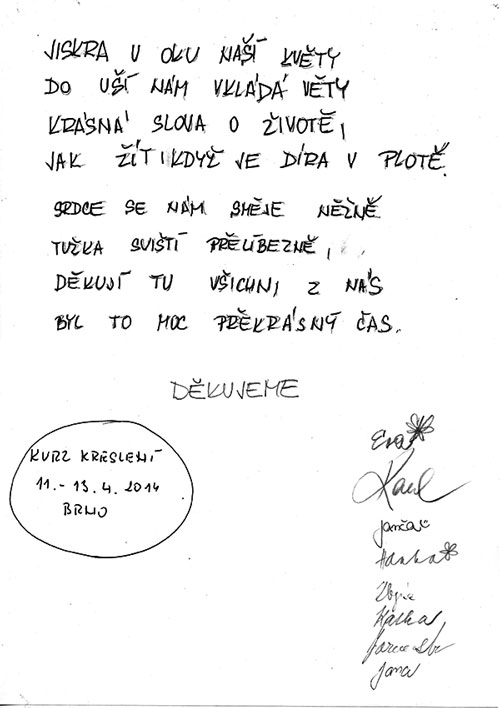 JISKRA V OKU NAŠÍ KVĚTY
DO UŠÍ NÁM VKLÁDÁ VĚTY
KRÁSNÁ SLOVA O ŽIVOTĚ,
JAK ŽÍT I KDYŽ JE DÍRA V PLOTĚ.
SRDCE SE NÁM SMĚJE NĚŽNĚ
TUŽKA SVIŠTÍ PŘELÍBEZNĚ,
DĚKUJÍ TU VŠICHNI Z NÁS
BYL TO MOC PŘEKRÁSNÝ ČAS.
DĚKUJEME
KURZ KRESLENÍ
11.-13.4.2014
BRNO
Eva
Karel
Janča
Hanka
Katka
Jana